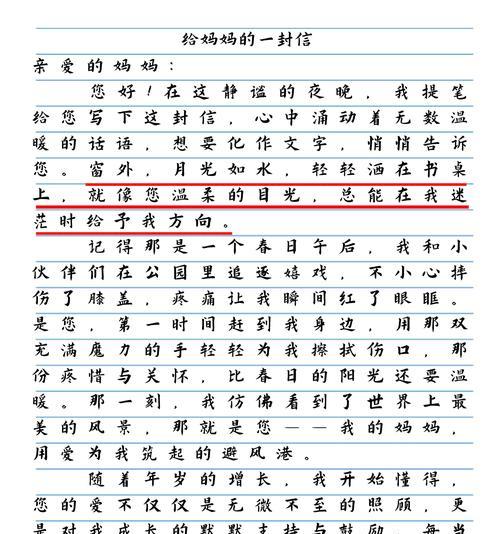 给妈妈的一封信
亲爱的妈妈：
您好！在这静谧的夜晚，我提笔
给您写下这封信，心中涌动着无数温
暖的话语，想要化作文字，悄悄告诉
您。窗外，月光如水，轻轻洒在书桌
上，就像您温柔的目光，总能在我迷
茫时给予我方向。
记得那是一个春日午后，我和小
伙伴们在公园里追逐嬉戏，不小心摔
伤了膝盖，疼痛让我瞬间红了眼眶。
是您，第一时间赶到我身边，用那双
充满魔力的手轻轻为我擦拭伤口，那
份疼惜与关怀，比春日的阳光还要温
暖。那一刻，我仿佛看到了世界上最
美的风景，那就是您——我的妈妈，
用爱为我筑起的避风港。
随着年岁的增长，我开始懂得，
您的爱不仅仅是无微不至的照顾，更
是对我成长的默默支持与鼓励。每当